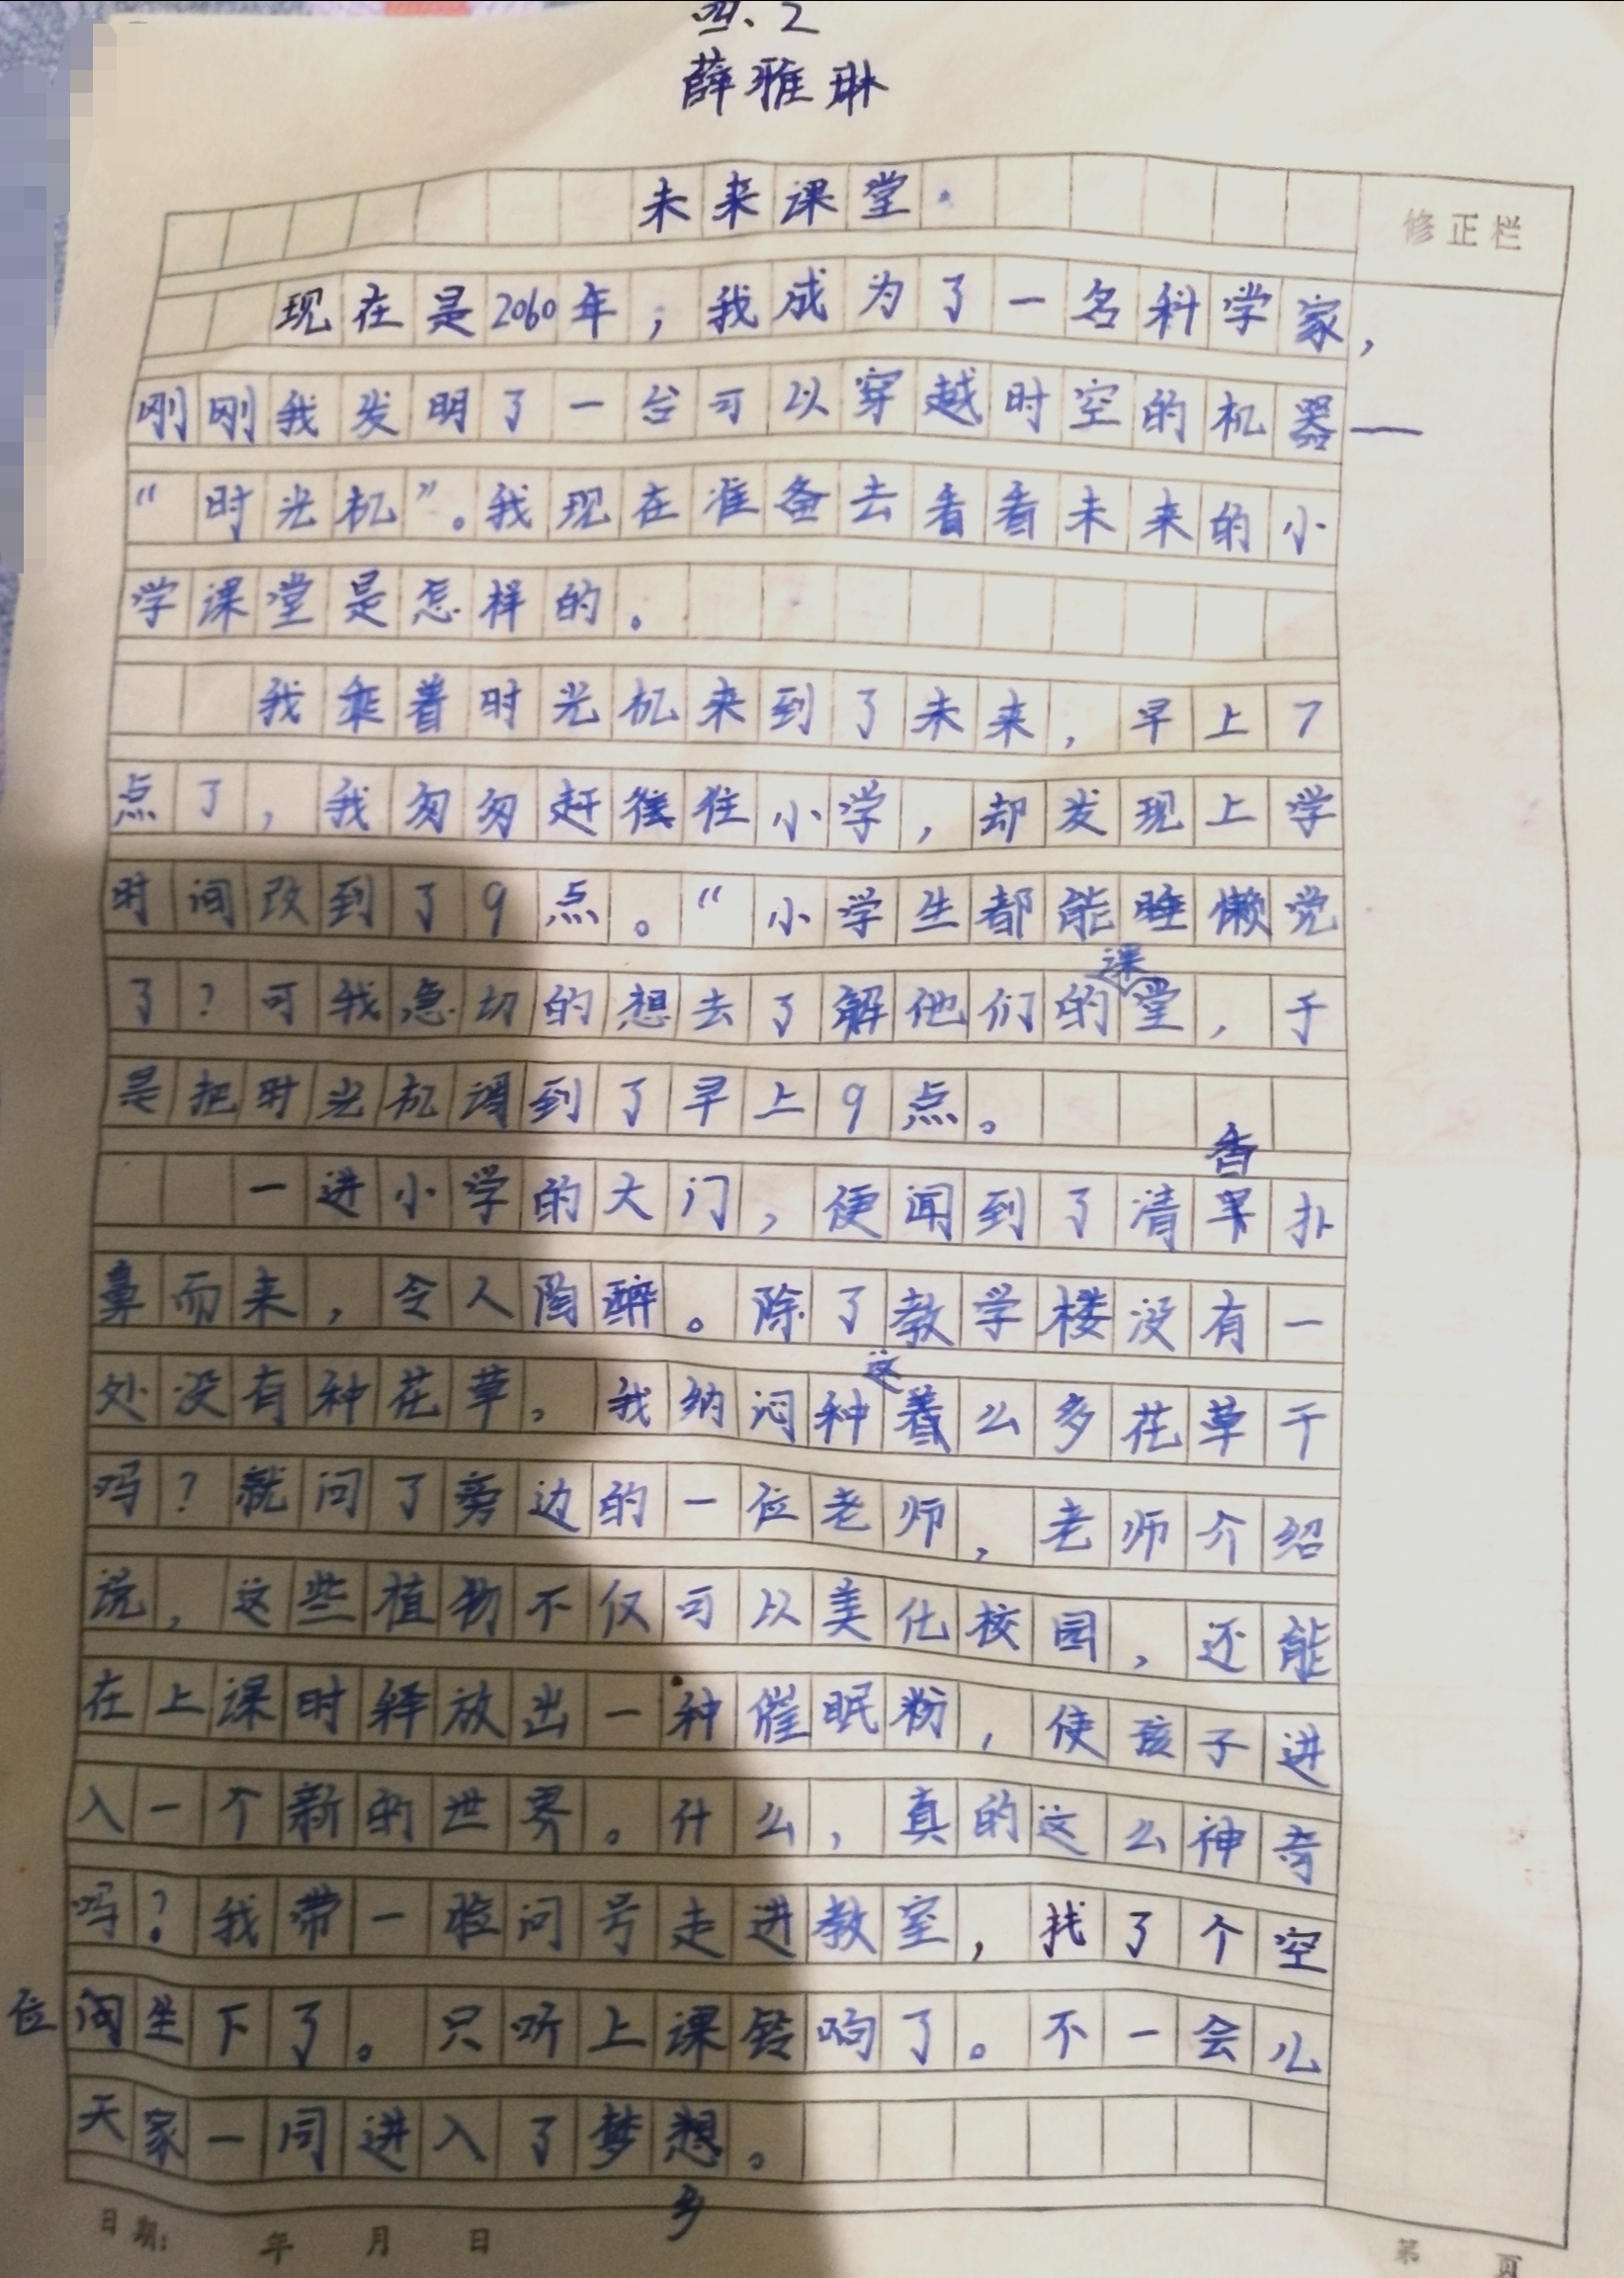 四、2
薛雅琳
未来课堂
修正栏
现在是2060年，我成为了一名科学家，
刚刚我发明了一台可以穿越时空的机器——
“时光机”。我现在准备去看看未来的小
学课堂是怎样的。
我乘着时光机来到了未来，早上7
点了，我匆匆赶往小学，却发现上学
时间改到了9点。“小学生都能睡懒觉
了？可我急切的想去了解他们的课堂，于
是把时光机调到了早上9点。
一进小学的大门，便闻到了清香扑
鼻而来，令人陶醉。除了教学楼没有一
处没有种花草。我纳闷种这么多花草干
吗？就问了旁边的一位老师，老师介绍
说，这些植物不仅可以美化校园，还能
在上课时释放出一种催眠粉，使孩子进
入一个新的世界。什么，真的这么神奇
吗？我带一脸问号走进教室，找了个空
位闾坐下了。只听上课铃响了。不一会儿
天家一同进入了梦乡。
日期： 年 月 日
第 页